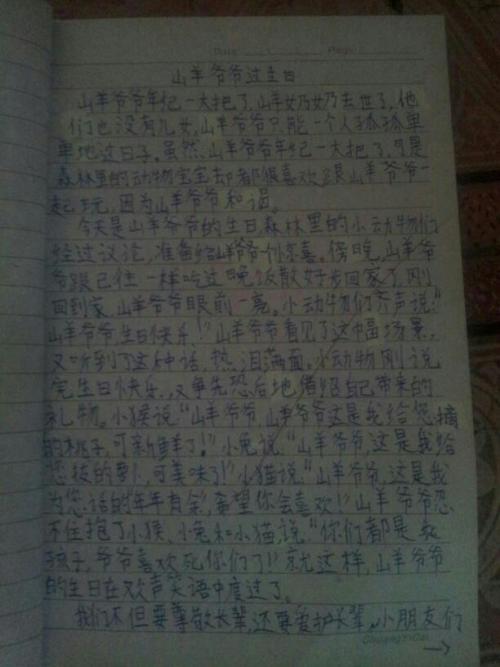 Date
Page
山羊爷爷过生日
山羊爷爷年纪一大把了,山羊奶奶去世了,他
们也没有儿女,山羊爷爷只能一个人孤孤单
单地过日子。虽然,山羊爷爷年纪一大把了,可是
森林里的动物宝宝却都很喜欢跟山羊爷爷一
起玩,因为山羊爷爷和谒。
今天是山羊爷爷的生日,森林里的小动物们
经过议论,准备给山羊爷爷一个惊喜。傍晚,山羊爷
爷跟已往一样吃过晚饭散好步回家了,刚
回到家,山羊爷爷眼前一亮。小动物们齐声说:“
山羊爷爷,生日快乐!”山羊爷爷看见了这幅场景,
又听到了这种话,热泪满面。小动物刚说
完生日快乐,又争先恐后地 自己带来的
礼物。小猴说:“山羊爷爷,山羊爷爷这是我给您摘
的桃子,可新鲜了!”小兔说:“山羊爷爷,这是我给
您拔的萝卜,可美味了!”小猫说:“山羊爷爷,这是我
为您 的年年有余,希望你会喜欢!”山羊爷爷忍
不住抱了小猴、小兔和小猫,说:“你们都是 
孩子,爷爷喜欢死你们了!”就这样,山羊爷爷
的生日在欢声笑语中度过了。
我们不但要尊敬长辈,还要爱护长辈,小朋友们
→